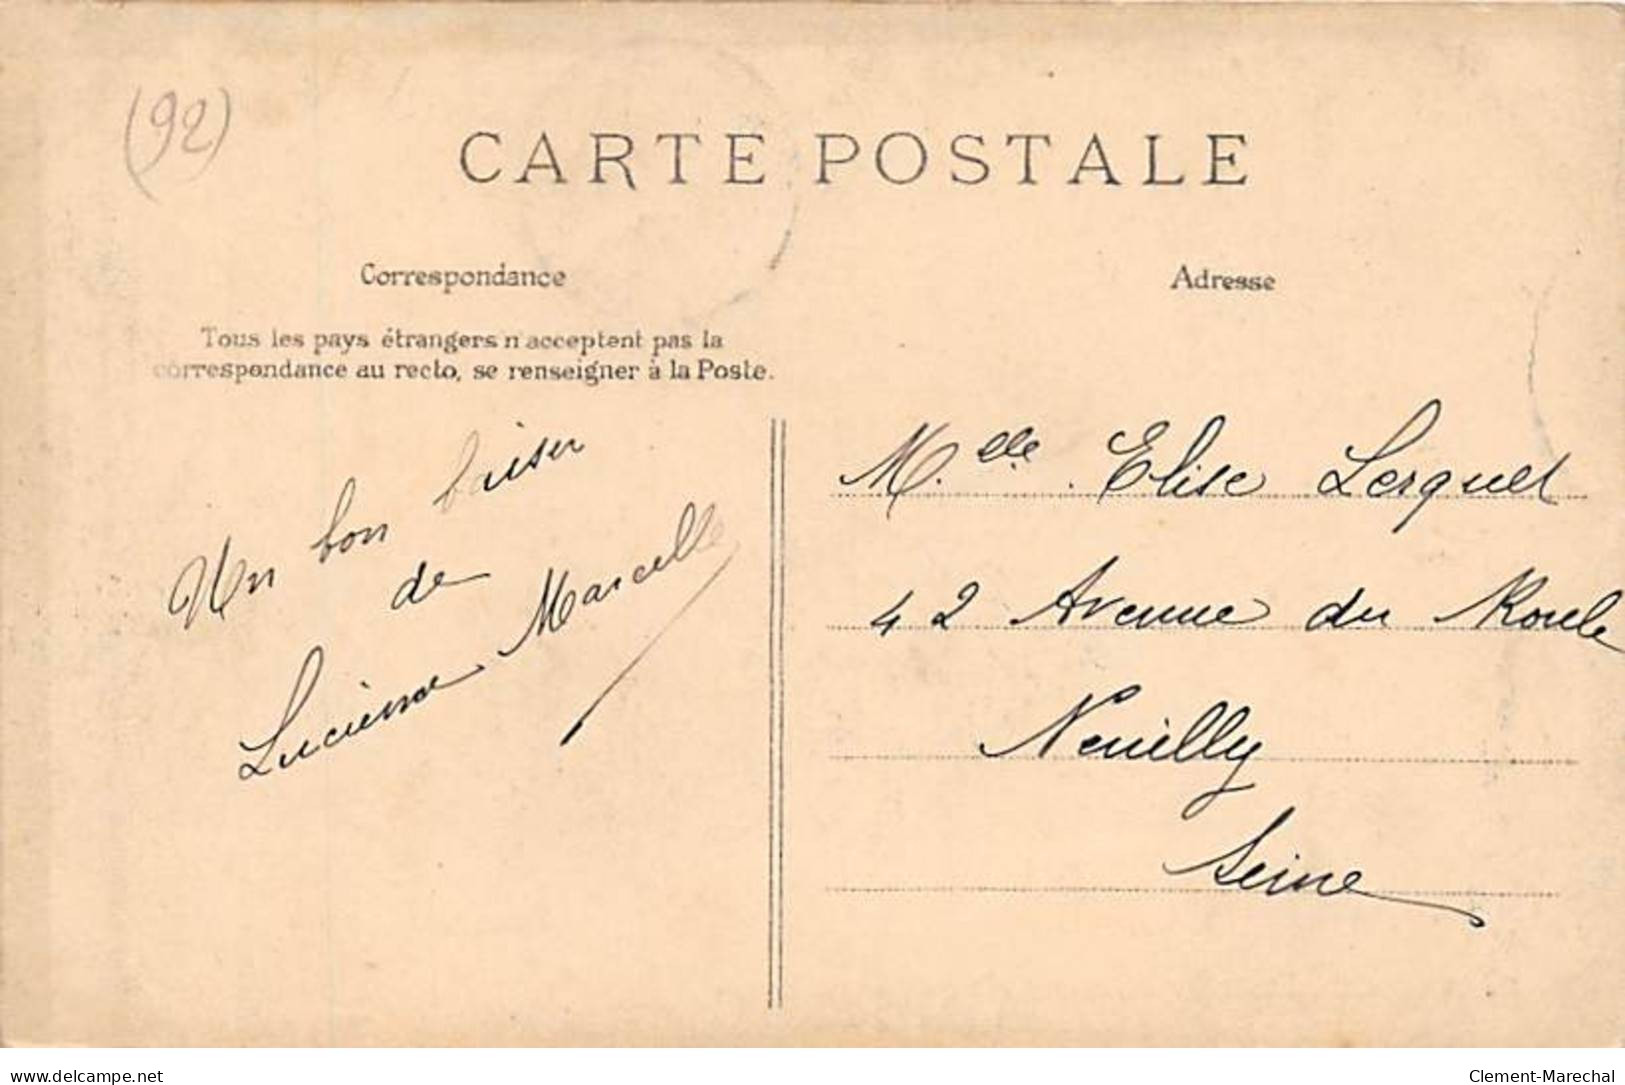 (92)
CARTE POSTALE
Correspondance
Tous les pays étrangers n'acceptent pas la
correspondance au recto, se renseigner à la Poste.
Un bon baiser
de
Lucienne Marcelle
Adresse
Melle. Elise Lerquet
42 Avenue du Roule
Neuilly
Seine
www.delcampe.net
Clement-Marechal